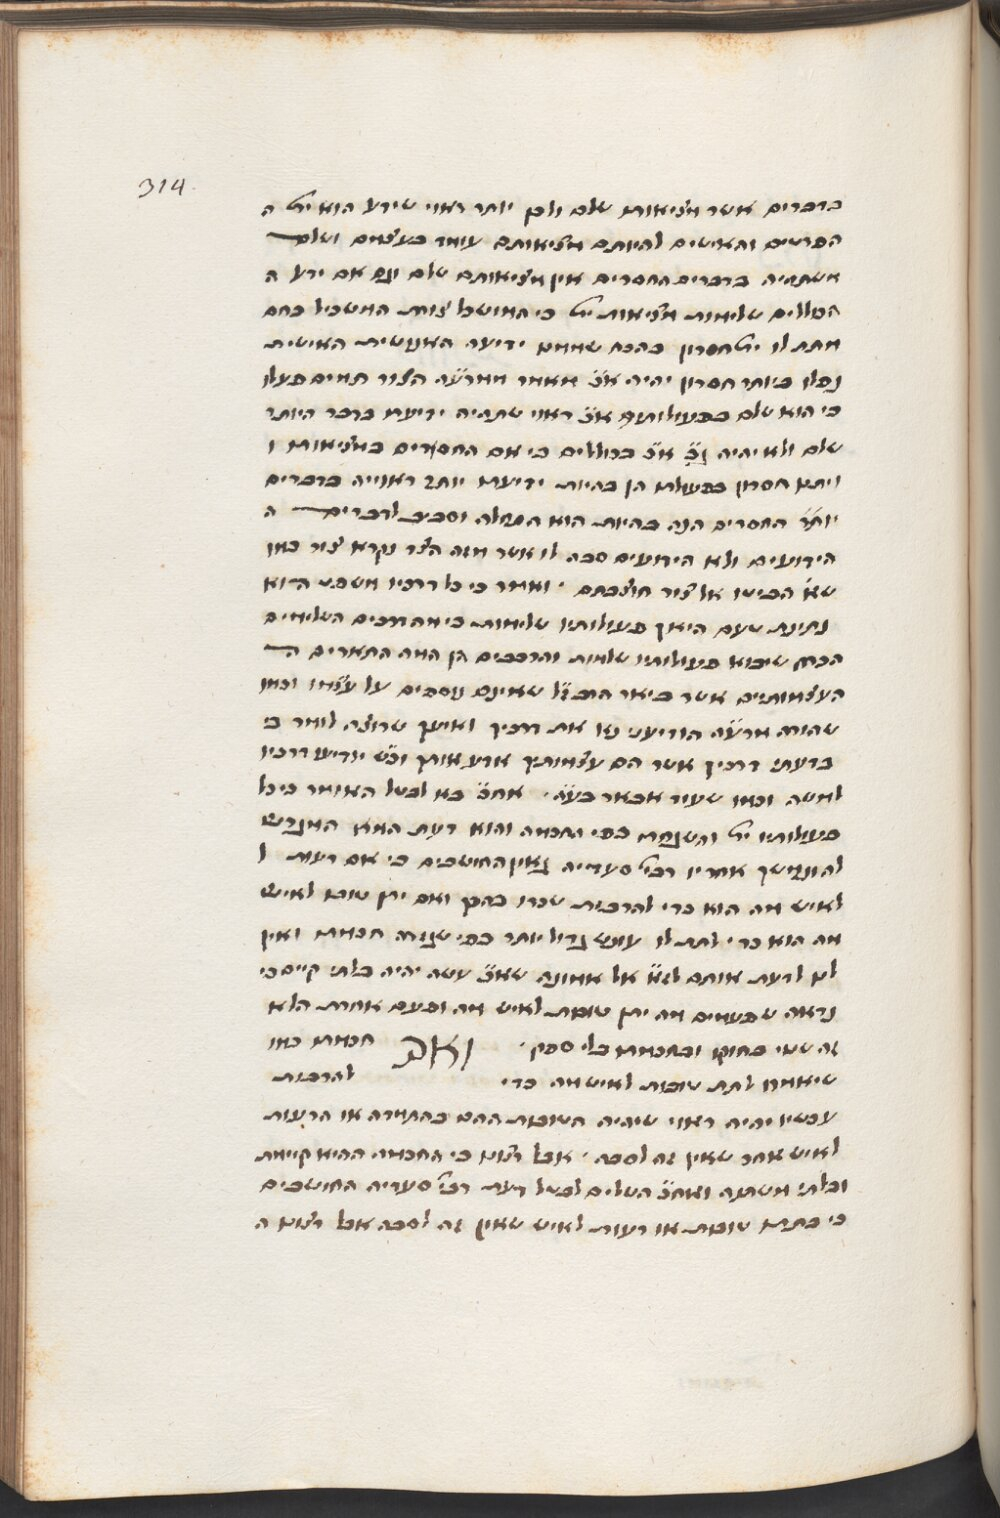 314
בדברים אשר מציאותם שלם ולכן יותר ראוי שידע הוא ית' ה
הפרטים והאישים להיותם מציאותם עומד בעצמם ושלם
משתהיה בדברים החסרים אין מציאותם שלם וגם אם ידע ה
הכוללים שלימות מציאות ית' כי המושכל צורת המשכיל בהם
מתת לו ית' חסרון בהכח שממנו ידיעה האנושית האישית
נפלו ביותר חסרון יהיה א"כ מאמר ממרע"ה הצור תמים פעלו
כי הוא שלם בפעולותיו א"כ ראוי שתהיה ידיעתו בדבר היותר
שלם ולא יהיה א"כ בכוללים כי אם החסרים במציאותם ו
ויתן חסרון בפעולתו הן בהיות ידיעתו יותר ראוייה בדברים
יותר החסרים הנה בהיות הוא התחלה וסבה לדברים ה
הידועים ולא הידועים סבה לו אשר מזה הצד נקרא צור כמו
שא' הביטו אל צור חוצבתם · ואומר כי כל דרכיו משפט הוא
נתינת טעם היאך פעולותיו שלימות כי מהדרכים השלימים
הכרח שיבוא פעולותיו שלמות והדרכים הן המה התארים ה
העצמותיים אשר ביאר שאינם נוספים על עצמו וכמו
שהורה מרע"ה הודיעני נא את דרכיך ואיעך שרוצה לומר כי
בדעתי דרכיך אשר הם עצמותך אדע אותך וכ"ש יודיע דרכיו
למשה וכמו שעוד אבאר בע"ה · אח"כ בא לבטל האומר כי כל
פעולותיו ית' והשגחתו כפי החכמה והוא דעת
אחריו רבי' סעדיה גאון החושבים כי אם רעות ל
לאיש מה הוא כדי להרבות שכרו בהן ואם יתן טובה לאיש
מה הוא כדי לתת לו עונש גדול יותר כפי שגזרה חכמתו ואין
לנו לדעת אותם אל אמונה שא"כ עשה יהיה בלתי קיים כי
נראה שפעמים מה יתן טובות לאיש מה ופעם אחרת הלא
זה שנוי בחוקו ובחכמתו בלי ספק · ואם חכמתו כמו
שיאמרו לתת טובות לאיש מה כדי להרבות
עכשיו יהיה ראוי שיהיה הטובות ההם בהתמדה או הרעות
לאיש אחר שאין זה לסבה · אבל רצונו כי החכמה ההיא קיימת
ובלתי משתנה ואח"כ השלים לבטל דעת רבי' סעדיה החושבים
כי בתתו טובות או רעות לאיש שאין זה לסבה אבל רצונו ה